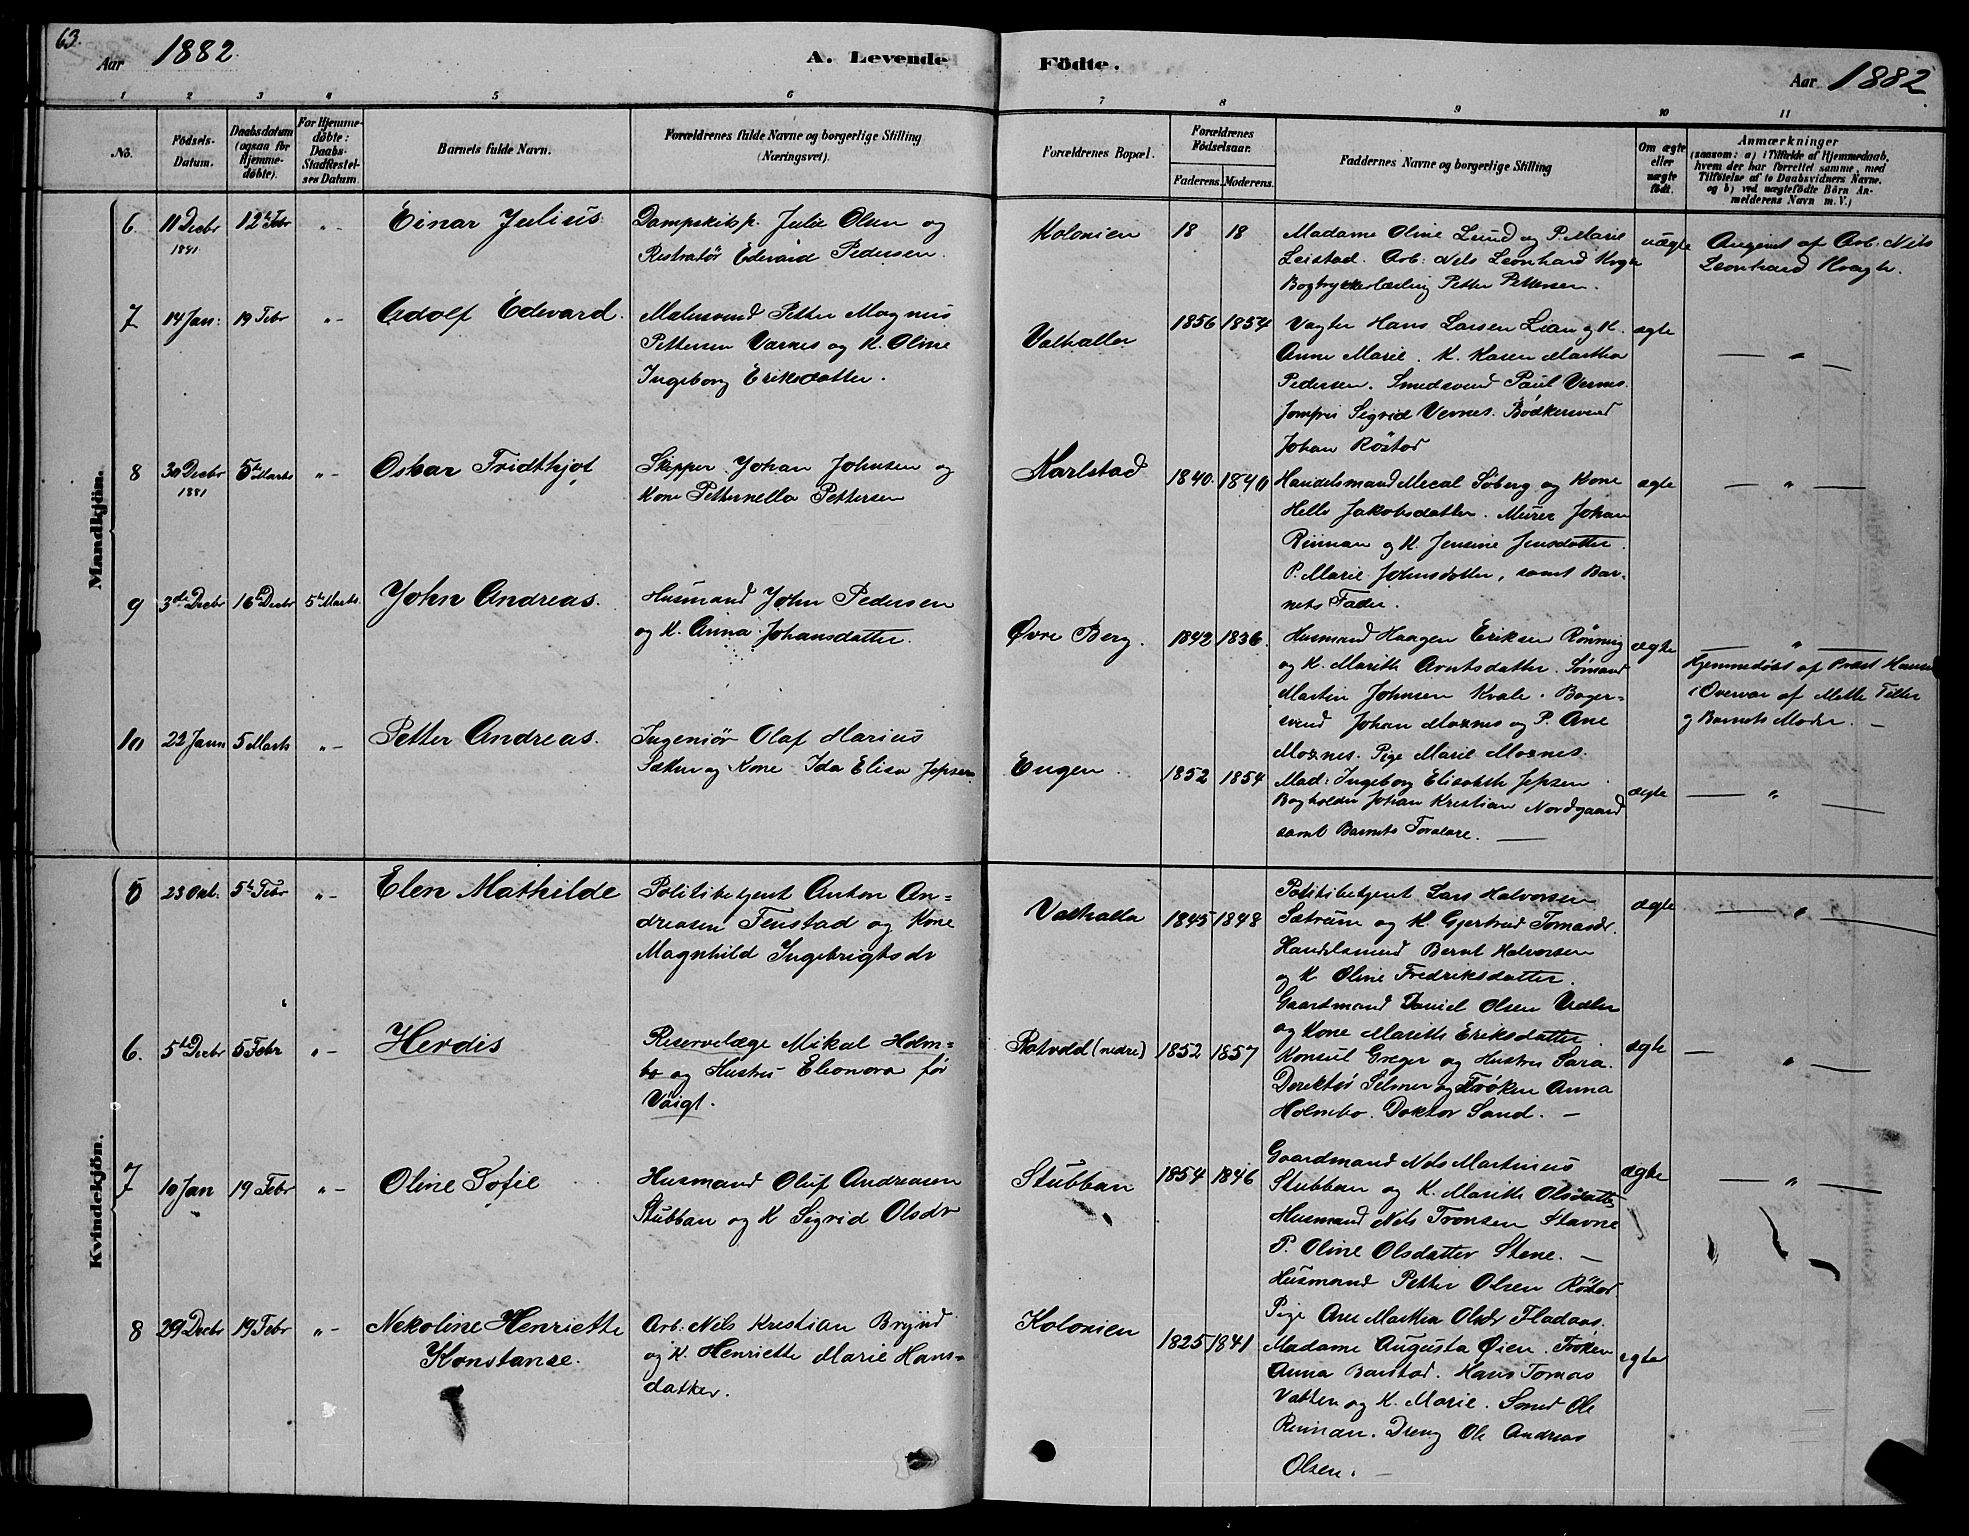 63.
Aar 1882.
A. Levende Födte.
Aar 1882
1 2 3 4 5 6 7 8 9 10 11
No.
Födsels-Datum.
Daabsdatum (ogsaa for Hjemme-døbte).
For Hjemme-døbte: Daabs-Stadfæstel-ses Datum.
Barnets fulde Navn.
Forældrenes fulde Navne og borgerlige Stilling
(Næringsvei).
Forældrenes Bopæl.
Forældrenes Födselsaar.
Faderens. Moderens.
Faddernes Navne og borgerlige Stilling
Om ægte eller uægte födt.
Anmærkninger
(saasom: a) i Tilfælde af Hjemmedaab, hvem der har forrettet samme, med Tilföielse af to Daabsvidners Navne, og b) ved uægtefödte Börn Anmelderens Navn m. V.)
Mandkjön.
6 11 Decbr 1881 12te Febr "- Einar Julius
Dampskibsp. Julie Olsen og
Restratør Edevard Pedersen.
Kolonien 18 18
Madame Oline Lund og P. Marie
Leistad. Arb: Nels Leonhard
Bogtrykkerlærling Petter Pettersen.
uægte
Angivet af Arb. Nils
Leonhard
7 14 Jan: 19 Febr "- Adolf Edevard.
Malersvend Petter Magnus
Pettersen Varnes og K. Oline
Ingeborg Eriksdatter.
Valhalla 1856 1854
Vagter Hans Larsen Lian og K.
Anne Marie. K. Karen Martha
Pedersen. Smedsvend Paul Vernes.
Jomfru Sigrid Vernes. Bödkersvend
Johan Röstad
ægte — " —
8 30 Decbr 1881 5te Marts "- Oskar Fridthjof
Skipper Johan Johnsen og
Kone Petternella Pettersen
Karlstad 1840. 1840
Handelsmand Mecal Soberg og Kone
Helle Jakobsdatter. Murer Johan
Reiman og K. Jensine Jensdatter.
P. Marie Johnsdatter, samt Bar-
nets Fader.
ægte — " —
9 3de Decbr 16de Decbr 5te Marts. John Andreas.
Husmand John Pedersen
og K. Anna Johansdatter.
Øvre Berg. 1842 1836.
Husmand Haagen Eriksen Rönning
og K. Marith Arntsdatter. Sømand
Martin Johnsen Kvale. Bager-
svend Johan Moxnes og P. Ane
Moxnes. Pige Marie Moxnes.
ægte — " —
Hjemmedøbt af Præst Hansen
i Overvær af Mette Tiller
og Barnets Moder. —
10 22 Janu 5 Marts "- Petter Andreas.
Ingeniör Olaf Marius
Sæther og Kone Ida Elisa Jepsen
Engen. 1852 1854
Mad: Ingeborg Elisabeth Jepsen
Bogholder Johan Kristian Nordgaard
samt Barnets Forældre. —
ægte — " —
Kvindekjön.
5 23 Okt. 5te Febr "- Elen Mathilde
Politibetjent Anton An-
dreasen Fenstad og Kone
Magnhild Ingebrigtsdr
Valhalla 1845 1848
Politibetjent Lars Halvorsen
Sætrum og K. Gjertrud Tomasdr.
Handelsmand Bernt Halvorsen
og K Oline Fredriksdatter.
Gaardmand Daniel Olsen
og Kone Marith Eriksdatter
ægte — " —
6. 5te Decbr 5 Febr "- Herdis
Reservelæge Mikal Holm-
bo og Hustru Eleonora før
Voigt.
Rotvold (nedre) 1852 1857
Konsul Greger og Hustru Sara.
Derektör Selmer og Frøken Anna
Holmbo. Doktor Sand. —
ægte — " —
7 10 Jan 19 Febr "- Oline Sofie
Husmand Oluf Andreasen
Stubban og K Sigrid Olsdr
Stubban 1854 1846
Gaardmand Nels Martinius
Stubban og K. Marith Olsdatter
Husmand Nels Tronsen Stavne
P. Oline Olsdatter Stene. —
Husmand Petter Olsen Röstad
Pige Ane Marthea Olsdr Fladaas.
ægte — " —
8 29 Decbr 19 Febr "- Nekoline Henriette
Konstanse.
Arb: Nels Kristian Brynd
og K. Henriette Marie Hans-
datter.
Kolonien 1825 1841
Madame Augusta Øien. Frøken
Anna Banstad. Hans Tomas
Vatten og K. Marie. Smed Ole
Reiman. Dreng Ole Andreas
Olsen. —
ægte